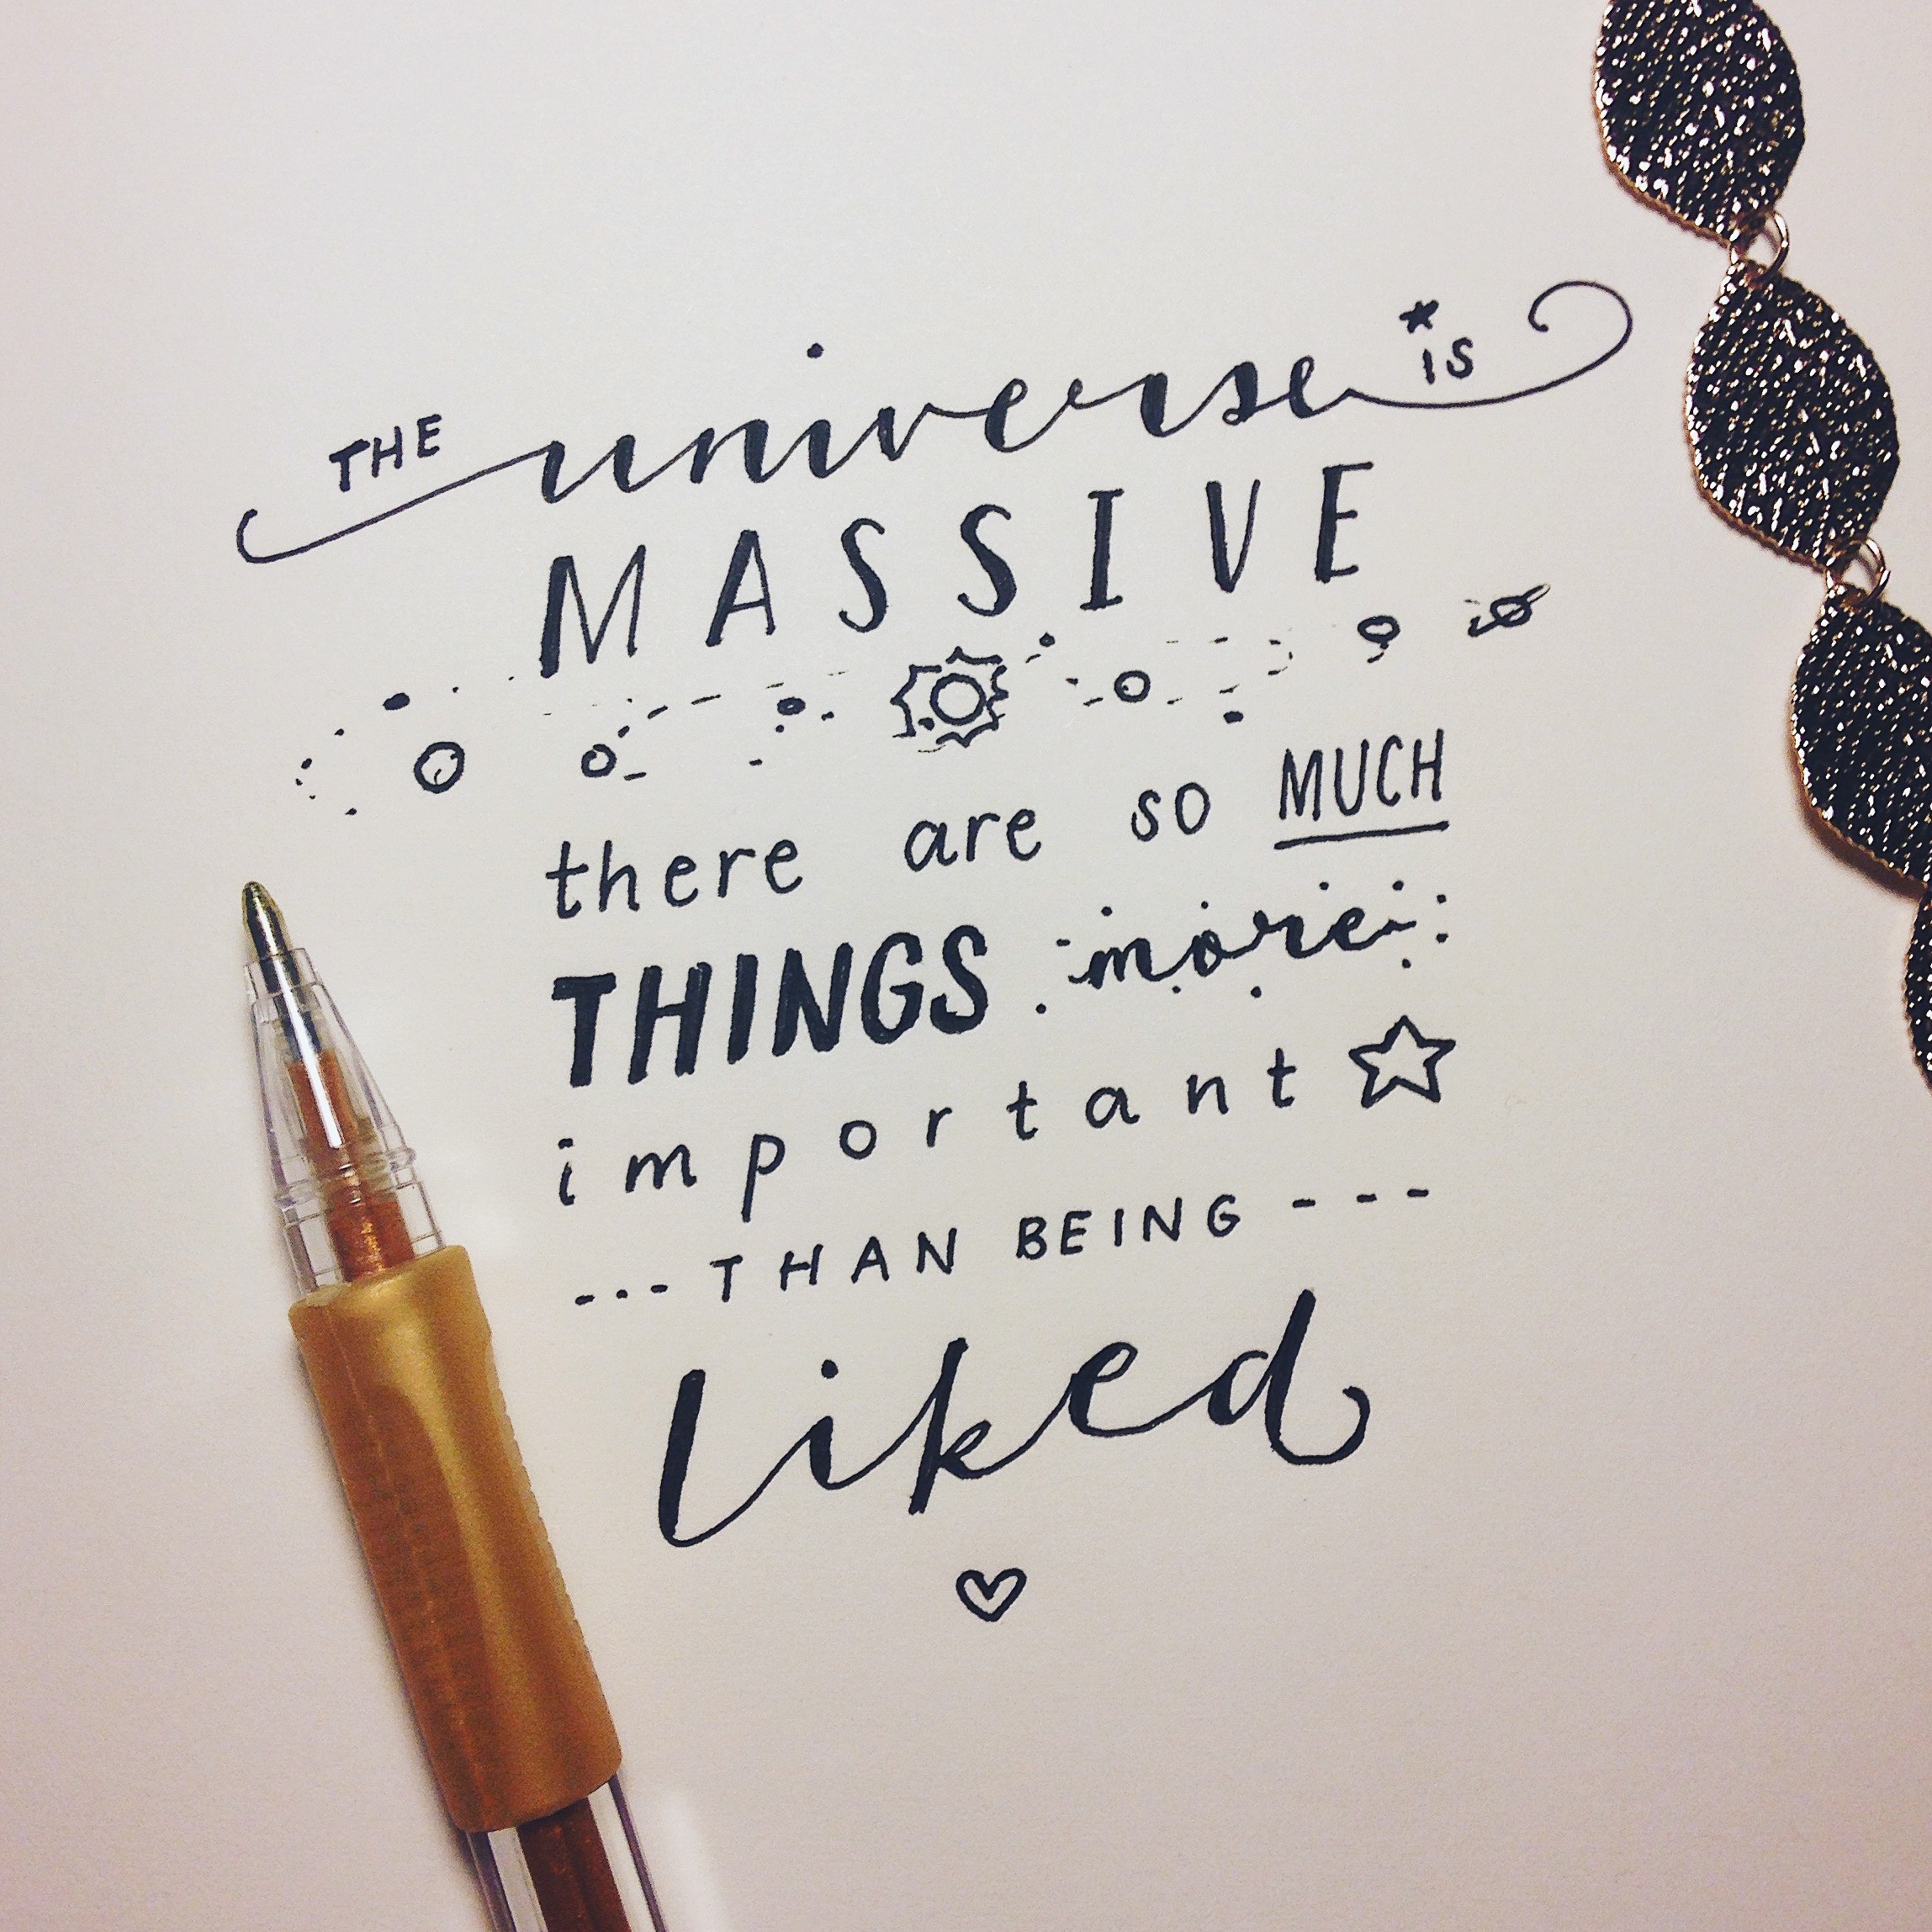 THE universe is
MASSIVE
there are so MUCH
THINGS more
important
THAN BEING
liked